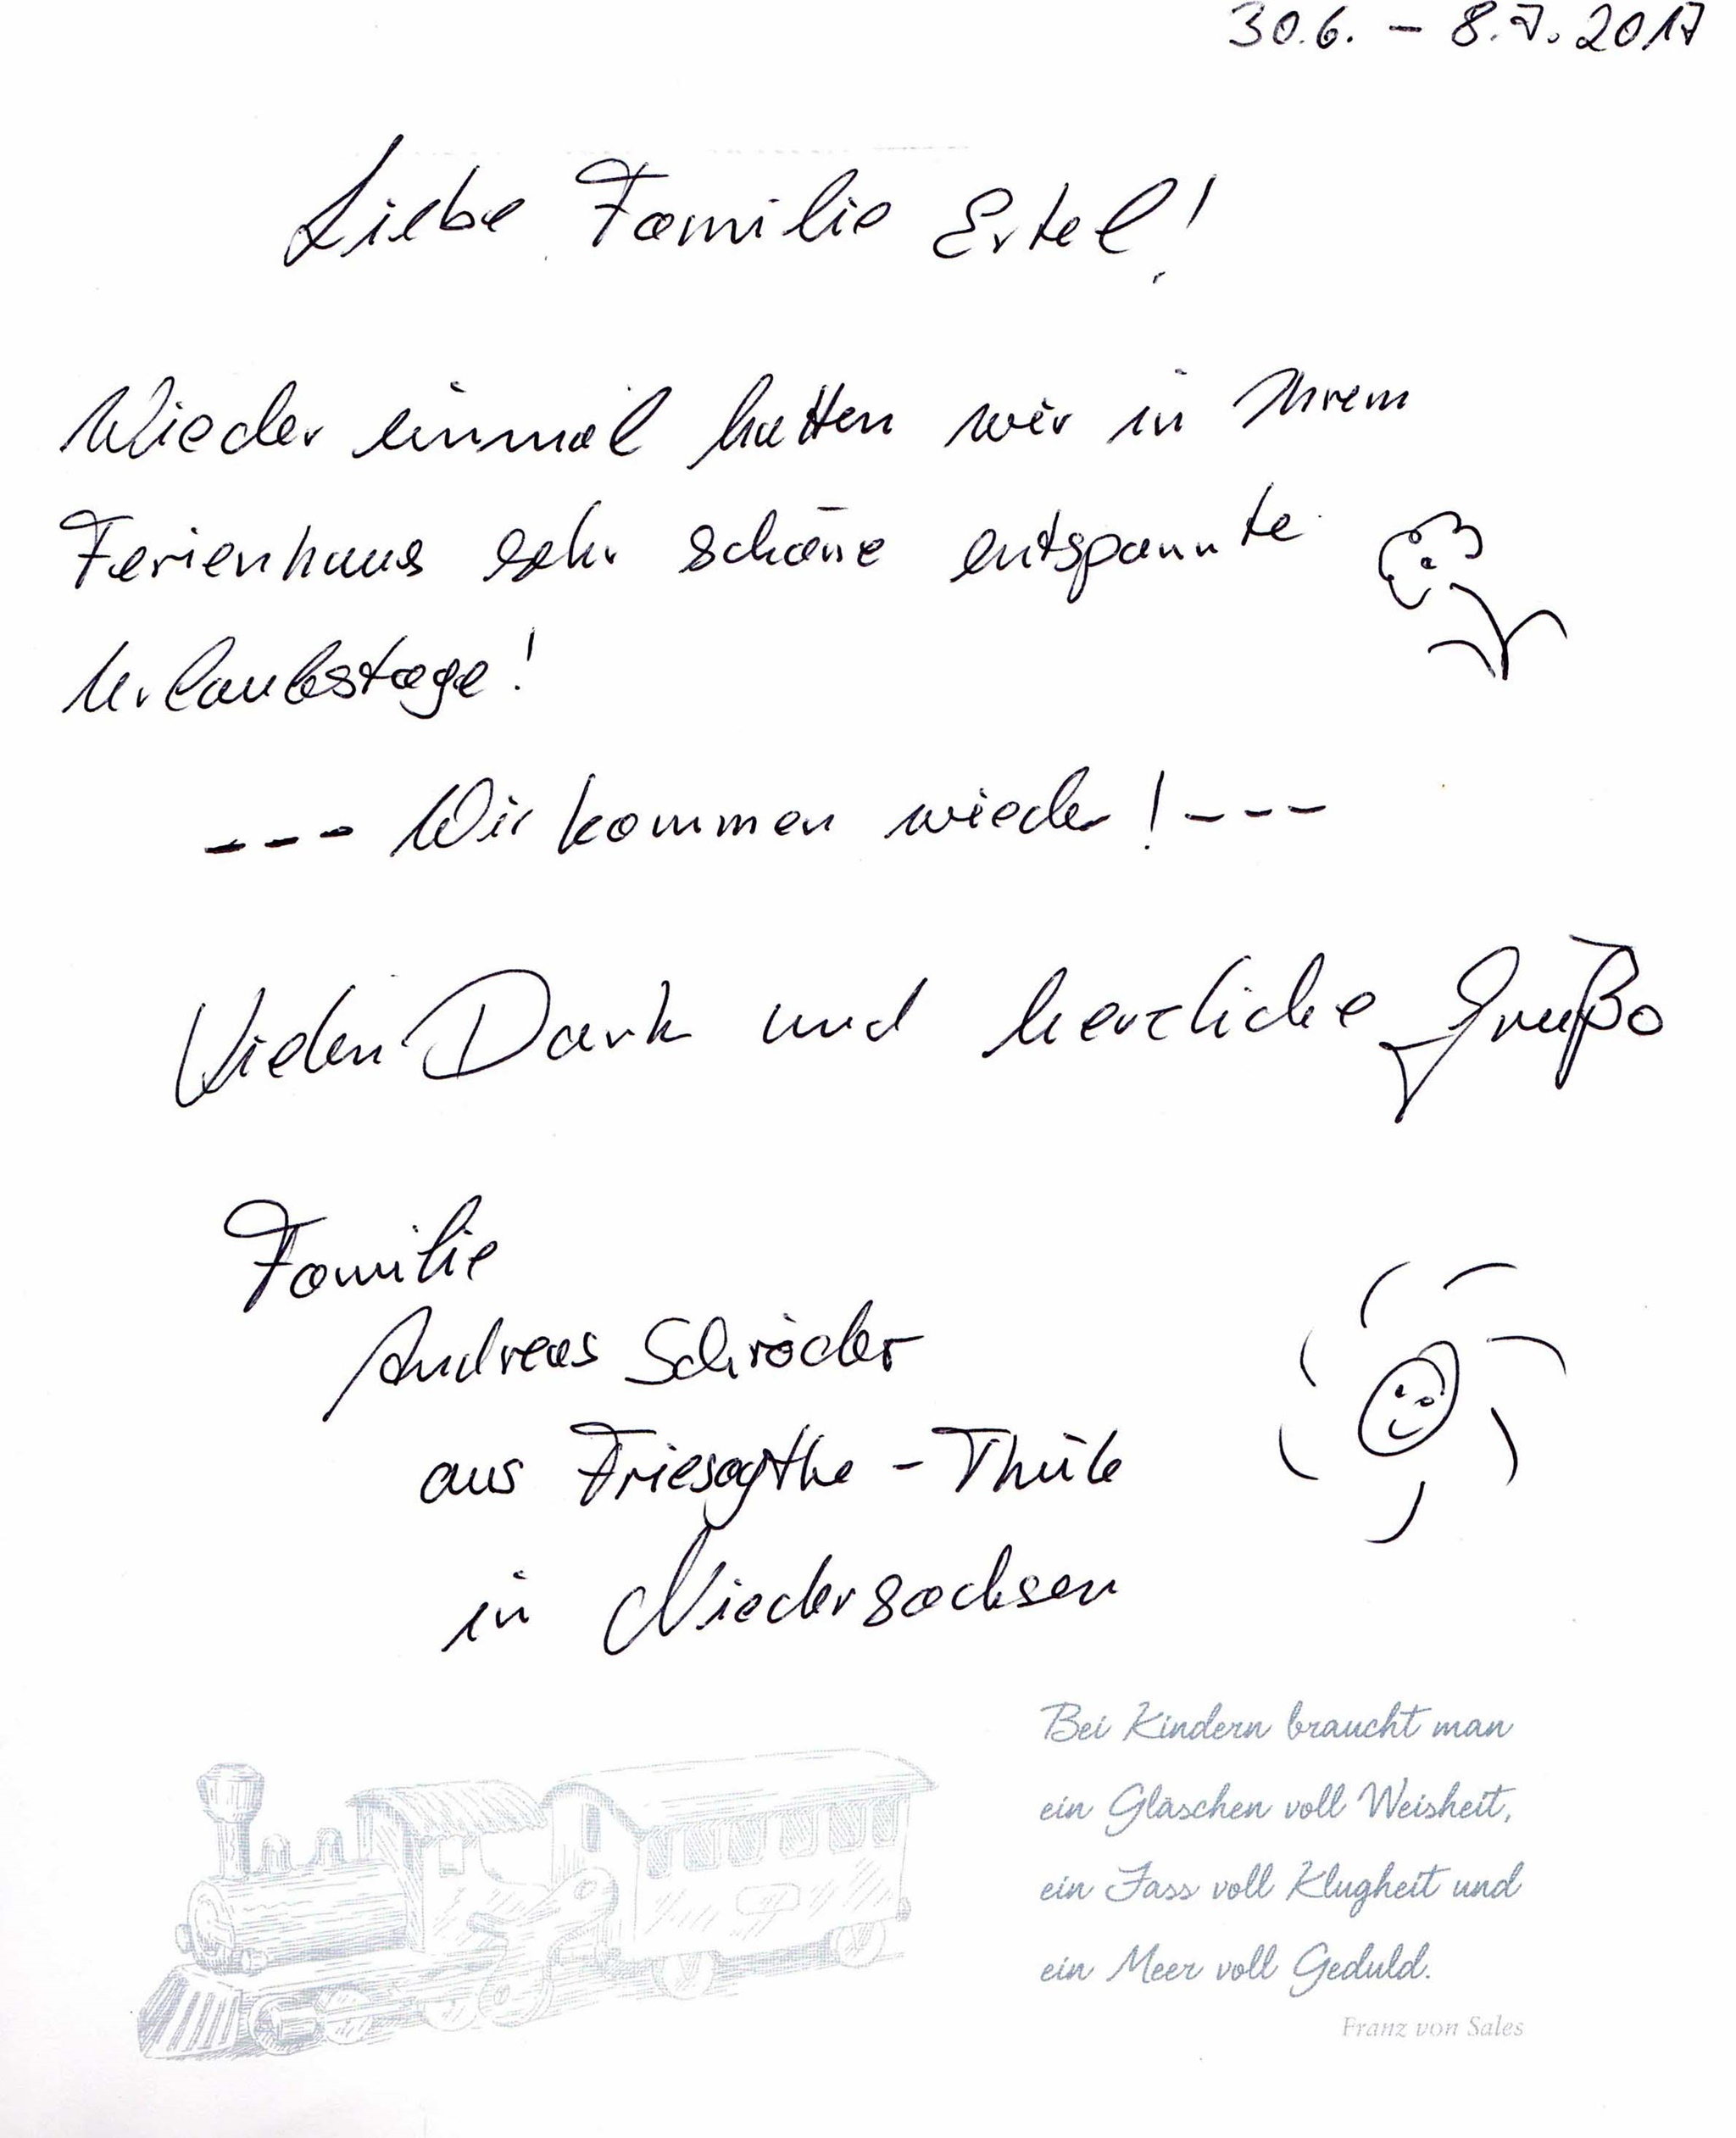 30.6. - 8.7.2017
Liebe Familie Ertel!
Wieder einmal hatten wir in Ihrem
Ferienhaus sehr schöne entspannte
Urlaubstage!
--- Wir kommen wieder! ---
Vielen Dank und herzliche Grüße
Familie
Andreas Schröder
aus Friesoythe - Thüle
in Niedersachsen
Bei Kindern braucht man
ein Gläschen voll Weisheit,
ein Fass voll Klugheit und
ein Meer voll Geduld.
Franz von Sales